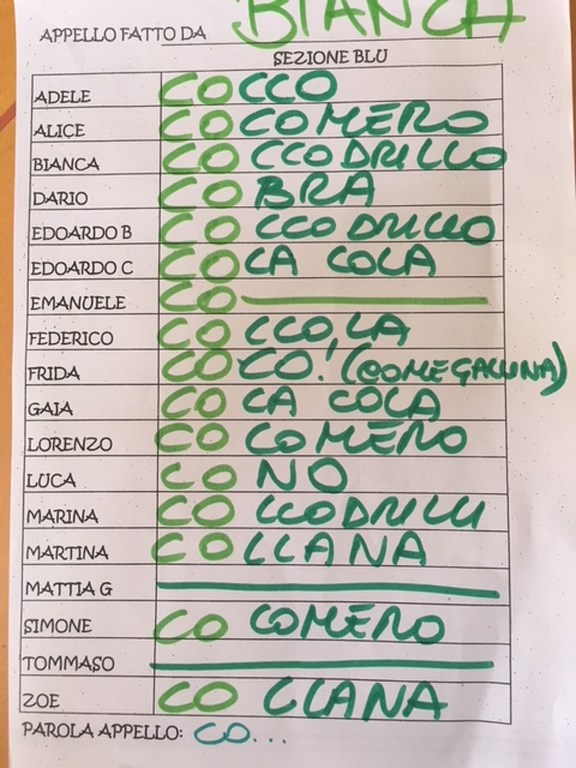 APPELLO FATTO DA BIANCA
SEZIONE BLU
ADELE COCCO
ALICE COCOMERO
BIANCA COCCODRILLO
DARIO COBRA
EDOARDO B COCCODRILLO
EDOARDO C COCA COLA
EMANUELE CO
FEDERICO COCCOLA
FRIDA COCO! (COME GALLINA)
GAIA COCA COLA
LORENZO COCOMERO
LUCA CONO
MARINA COCCODRILLI
MARTINA COLLANA
MATTIA G
SIMONE COCOMERO
TOMMASO
ZOE COLLANA
PAROLA APPELLO: CO...